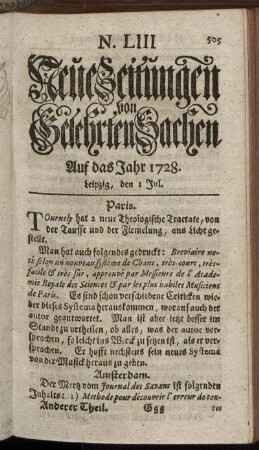 N. LIII 505
Neue Zeitungen
von
Gelehrten Sachen
Auf das Jahr 1728.
Leipzig, den 1 Jul.
Paris.
TOurnely hat 2 neue Theologische Tractate, von
der Tauffe und der Firmelung, ans Licht ge-
stellet.
Man hat auch folgendes gedruckt: Breviaire no-
té selon un nouveau systeme de Chant, très-court, très-
facile & très sûr, approuvé par Messieurs de l' Acade-
mie Royale des Sciences & par les plus habiles Musiciens
de Paris. Es sind schon verschiedene Criticken wie-
der dieses Systema heraus kommen, worauf auch der
autor geantwortet. Man ist aber jetzt besser im
Stande zu urtheilen, ob alles, was der autor ver-
sprochen, so leicht ins Werck zu setzen ist, als er ver-
sprochen. Er hofft nechstens sein neues Systema
von der Musick heraus zu geben.
Amsterdam.
Der Mertz vom Journal des Savans ist folgenden
Inhalts: 1) Methode pour découvrir l' erreur de tou-
Anderer Theil. Ggg tes